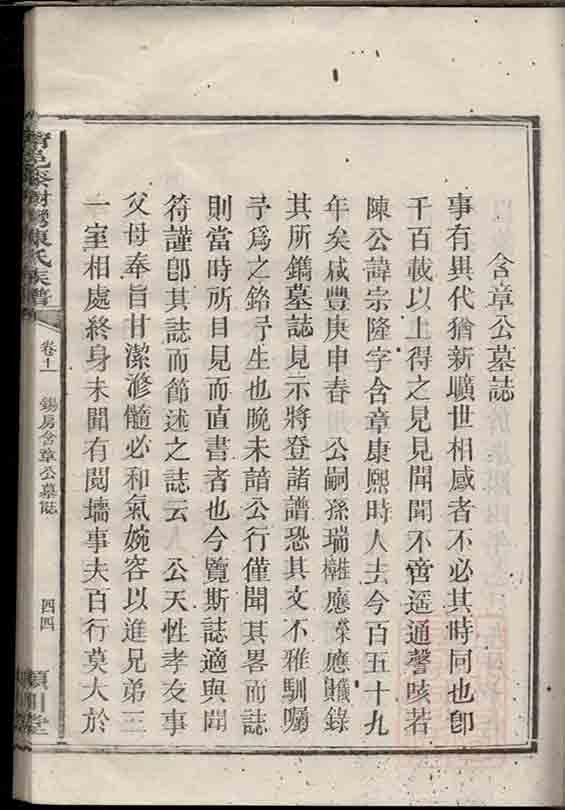 含章公墓誌
事有異代猶新曠世相感者不必其時同也卽
千百載以上得之見見聞聞不啻遥通謦咳若
陳公諱宗隆字含章康熙時人去今百五十九
年矣咸豐庚申春 公嗣孫瑞 應 應 錄
其所鐫墓誌見示將登諸譜恐其文不雅馴囑
予爲之銘予生也晚未諳公行僅聞其畧而誌
則當時所目見而直書者也今覽斯誌適與聞
符謹卽其誌而節述之誌云 公天性孝友事
父母奉旨甘潔滫髓必和氣婉容以進兄弟三
一室相處終身未聞有鬩墻事夫百行莫大於
陳氏族譜
卷十一
錫房含章公墓誌
四四
潁川堂